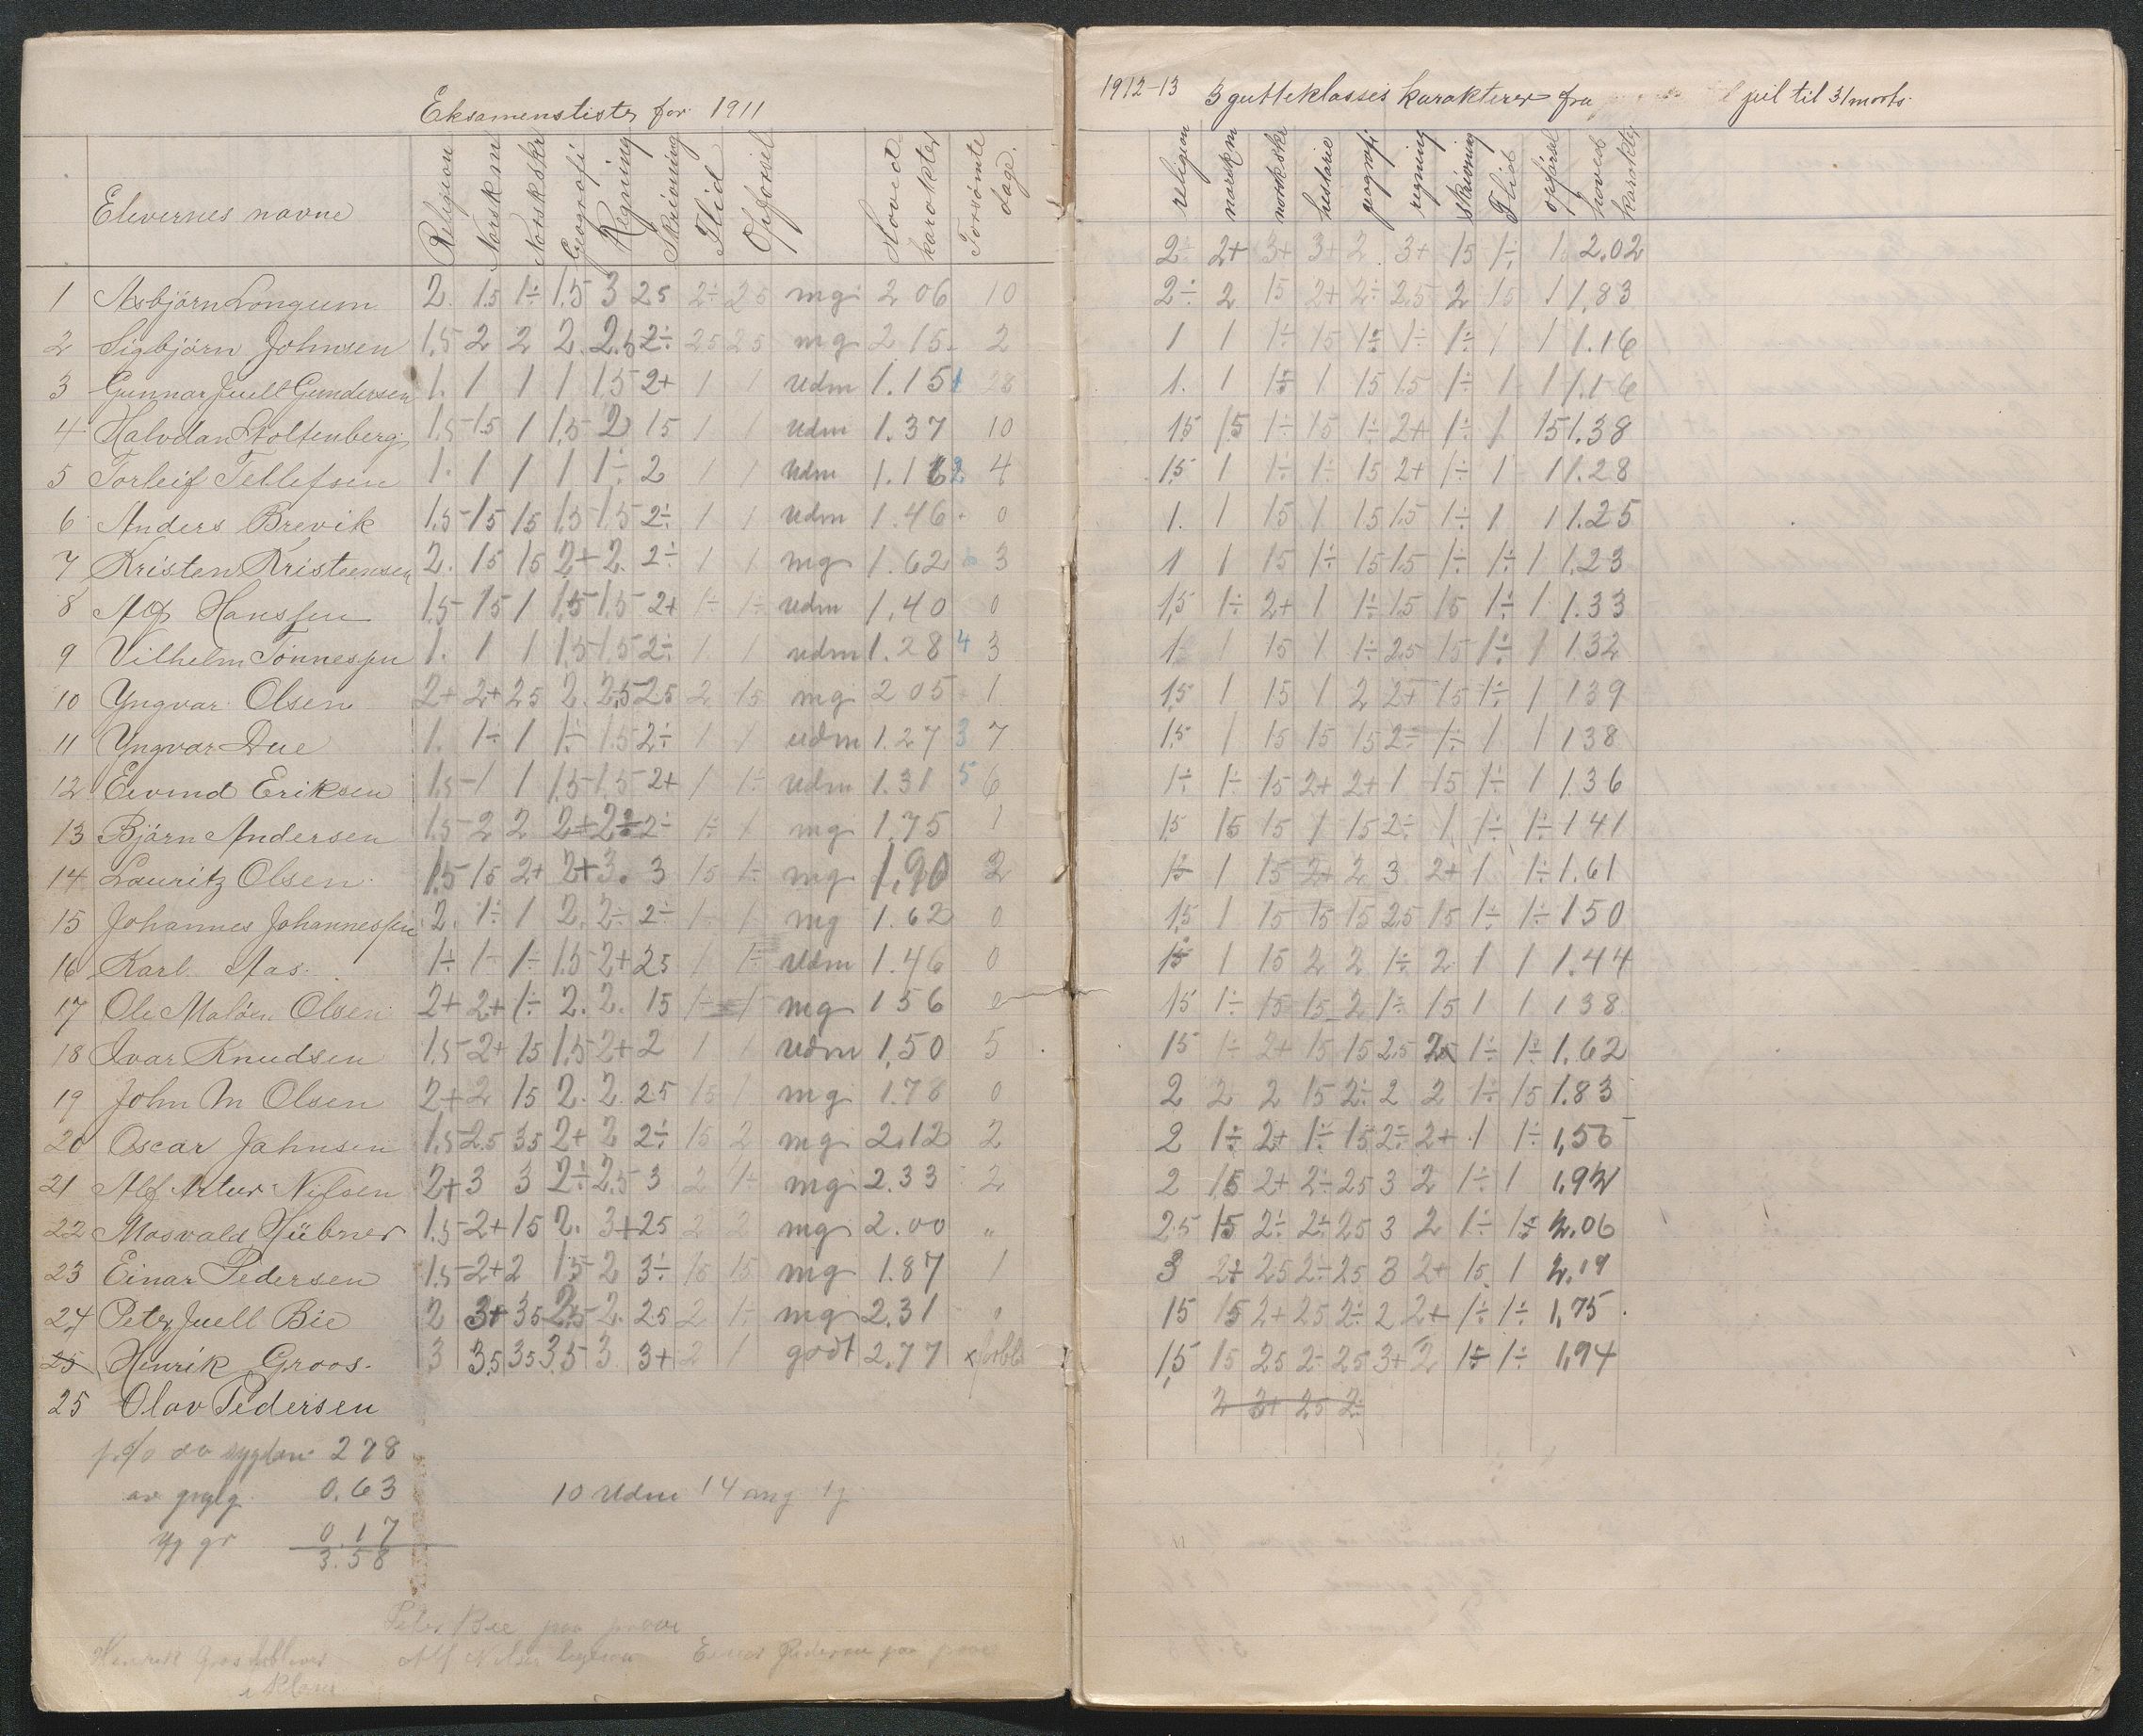 Eksamenstister for 1911
Elevernes navne Religion Norsk m Norsk skr Geografi Regning Skrivning Flid Opførsel Hoved karakter Forsømte dage.
1 Asbjørn Longum 2. 1.5 1÷ 1.5 3 2.5 2÷ 2.5 mg 2 06 10
2 Sigbjørn Johnsen 1.5 2 2 2. 2.5 2÷ 2.5 2.5 mg 2 15 2
3 Gunnar Juell Gundersen 1. 1 1 1 1.5 2+ 1 1 udm 1.15 1 28
4 Halvdan Stoltenberg 1.5 1.5 1 1.5 2 1.5 1 1 udm 1.37 10
5 Torleif Tellefsen 1. 1 1 1 1÷ 2 1 1 udm 1.16 2 4
6 Anders Brevik 1.5 1.5 1.5 1.5 1.5 2÷ 1 1 udm 1.46 0
7 Kristen Kristensen 2. 15 15 2+ 2. 2÷ 1 1 mg 1.62 3
8 Alf Hanssen 1.5 15 1 1.5 1.5 2+ 1÷ 1÷ udm 1.40 0
9 Vilhelm Tönnessen 1. 1 1 1.5 1.5 2÷ 1 1 udm 1.28 4 3
10 Yngvar Olsen 2+ 2+ 25 2. 2.5 2.5 2 15 mg 2 05 1
11 Yngvar Due 1. 1÷ 1 1÷ 1.5 2÷ 1 1 udm 1.27 3 7
12 Eivind Eriksen 1.5 1 1 1.5 1.5 2+ 1 1÷ udm 1.31 5 6
13 Bjørn Andersen 1.5 2 2 2+ 2÷ 2÷ 1÷ 1 mg 1.75 1
14 Lauritz Olsen 1.5 15 2+ 2+ 3. 3 15 1÷ mg 1,90 2
15 Johannes Johannessen 2. 1÷ 1 2. 2÷ 2÷ 1 1 mg 1.62 0
16 Karl Aas. 1÷ 1 1÷ 1.5 2+ 25 1 1÷ udm 1.46 0
17 Ole Maløen Olsen 2+ 2+ 1÷ 2. 2. 15 1÷ 1 mg 1 56 0
18 Ivar Knudsen 1.5 2+ 15 1.5 2+ 2 1 1 udm 1,50 5
19 John M Olsen 2+ 2 15 2. 2. 2.5 15 1 mg 1.78 0
20 Oscar Jahnsen 1.5 2.5 35 2+ 2 2÷ 15 2 mg 2,12 2
21 Alf Artur Nilsen 2+ 3 3 2÷ 2.5 3 2 1÷ mg 2.33 2
22 Mosvald Hübner 1.5 2+ 15 2. 3+ 25 2 2 mg 2.00 "
23 Einar Pedersen 1.5 2+ 2 1.5 2 3÷ 15 15 mg 1.87 1
24 Peter Juell Bie 2 3+ 35 2.5 2. 2.5 2 1÷ mg 2.31
25 Henrik Groos. 3 3.5 3.5 3.5 3 3+ 2 1 godt 2,77 x
25 Olav Pedersen
av sygdom 278
av 0.63 10 udm 14 mg 1g
gr 0.17
3.58
Peter Bie paa prøve
Henrik Gros i klassen Alf Nilsen Einar Pedersen paa prøve
1912-13 5 gutteklasses karakterer fra jul til 31 marts.
religion norsk m norsk skr historie geografi regning skrivning Flid opførsel hoved karakter
2÷ 2+ 3+ 3+ 2 3+ 15 1÷ 1 2.02
2÷ 2 15 2+ 2÷ 2.5 2 15 1 1,83
1 1 1÷ 15 1÷ 1÷ 1÷ 1 1 1.16
1. 1 1÷ 1 15 1.5 1÷ 1 1 1.16
15 15 1÷ 15 1÷ 2+ 1÷ 1 15 1.38
1.5 1 1÷ 1÷ 15 2+ 1÷ 1 1 1.28
1. 1 15 1 15 1.5 1÷ 1 1 1.25
1 1 15 1÷ 15 1.5 1÷ 1÷ 1 1.23
1,5 1÷ 2+ 1 1÷ 1.5 15 1÷ 1 1.33
1 1 15 1 1÷ 2.5 15 1÷ 1 1.32
1.5 1 15 1 2 2+ 15 1÷ 1 1 39
1.5 1 15 15 15 2÷ 1÷ 1 1 1 38
1÷ 1÷ 15 2+ 2+ 1 15 1÷ 1 1.36
15 15 15 1 15 2÷ 1 1÷ 1÷ 1 41
15 1 15 2+ 2 3 2+ 1 1÷ 1.61
1.5 1 15 15 15 2.5 15 1÷ 1÷ 1 50
15 1 15 2 2 1÷ 2 1 1 1.44
15 1÷ 15 15 2 1÷ 15 1 1 1 38
15 1÷ 2+ 15 15 2.5 25 1÷ 1÷ 1.62
2 2 2 15 2÷ 2 2 1÷ 15 1.83
2 1÷ 2+ 1÷ 15 2÷ 2+ 1 1÷ 1,56
2 15 2+ 2÷ 25 3 2 1÷ 1 1.92
2.5 15 2÷ 2÷ 25 3 2 1÷ 15 2.06
3 2+ 25 2÷ 25 3 2+ 15 1 2.19
15 15 2+ 25 2÷ 2 2+ 1÷ 1÷ 1,75
1,5 15 25 2÷ 25 3+ 2 1÷ 1÷ 1,94
2 2+ 25 2÷